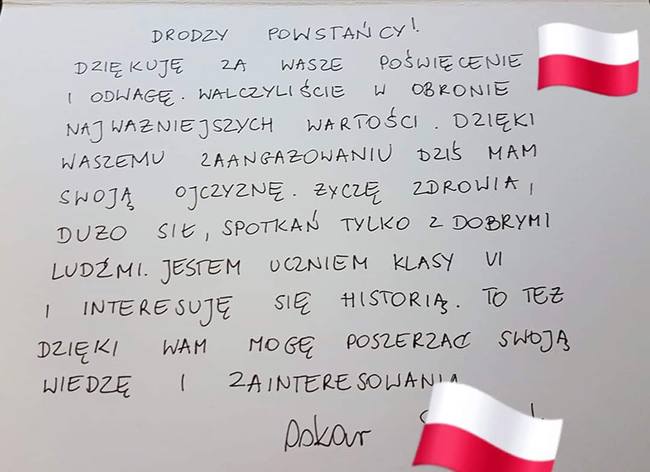 DRODZY POWSTAŃCY!
DZIĘKUJĘ ZA WASZE POŚWIĘCENIE
I ODWAGĘ. WALCZYLIŚCIE W OBRONIE
NAJWAŻNIEJSZYCH WARTOŚCI. DZIĘKI
WASZEMU ZAANGAŻOWANIU DZIŚ MAM
SWOJĄ OJCZYZNĘ. ŻYCZĘ ZDROWIA,
DUŻO SIŁ, SPOTKAŃ TYLKO Z DOBRYMI
LUDŹMI. JESTEM UCZNIEM KLASY VI
I INTERESUJĘ SIĘ HISTORIĄ. TO TEŻ
DZIĘKI WAM MOGĘ POSZERZAĆ SWOJĄ
WIEDZĘ I ZAINTERESOWANIA
Oskar